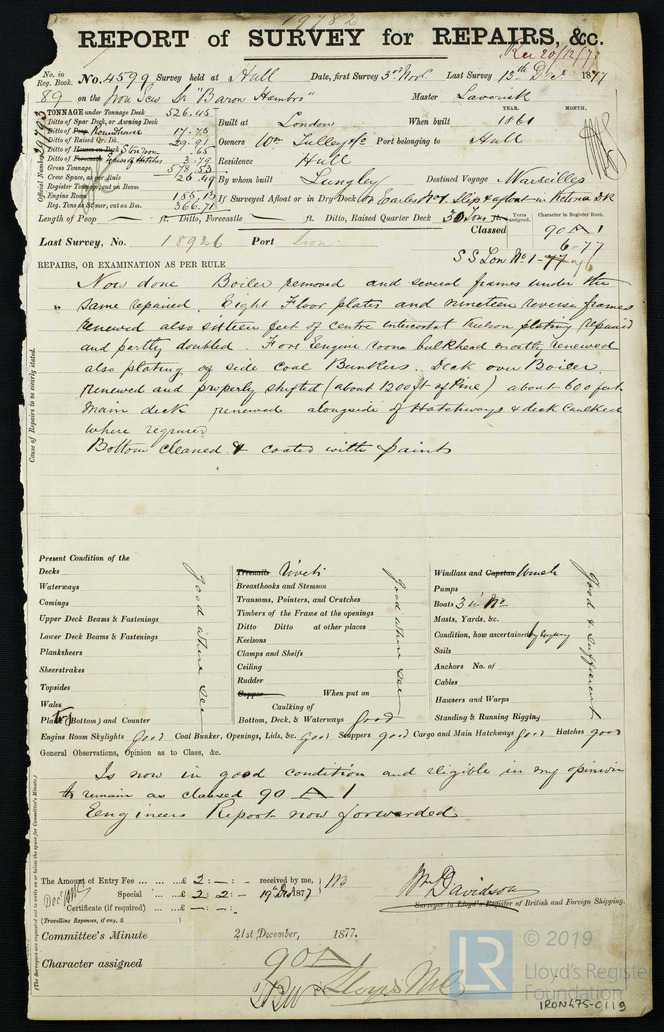 19782
REPORT of SURVEY for REPAIRS, &c.
Rec 20/12/77
No. in Reg. Book. No. 4599 Survey held at Hull Date, first Survey 3rd Novr Last Survey 13th Decr 1877
89 on the Iron Scw Sr "Baron Hambro" Master Laverick
TONNAGE under Tonnage Deck 526.45
Ditto of Spar Deck, or Awning Deck
Ditto of Poop Roundhouse 17.73
Ditto of Raised Qr. Dk. 29.91
Ditto of Store room .65
Ditto of Forecastle Excess of Hatches 3.79
Gross Tonnage 578.53
Crew Space, as per Rule 26.49
Register Tonnage, cut on Beam
Engine Room 185.13
Reg. Tonn as Steamer, cut on Bm. 366.71
Official Number
Built at London When built YEAR. 1861 MONTH.
Owners Wm Tulley & Co Port belonging to Hull
Residence Hull
By whom built Lungley Destined Voyage Marseilles
If Surveyed Afloat or in Dry Dock On Earles No 1 Slip & afloat in Victoria Dk
Length of Poop ft. Ditto, Forecastle ft. Ditto, Raised Quarter Deck 30 ft. Years assigned. Character in Register Book.
Classed 90 A 1
6-77
Last Survey, No. 18926 Port
S S Lon No 1-77
REPAIRS, OR EXAMINATION AS PER RULE
Now done Boiler removed and several frames under the
same repaired. Eight Floor plates and nineteen reverse frames
renewed also sixteen feet of centre intercostal keelson plating repaired
and partly doubled. Fore Engine room bulkhead mostly renewed
also plating of side Coal Bunkers. Deck over Boiler
renewed and properly shifted (about 1200 ft of Pine) about 600 feet
main deck renewed alongside of Hatchways & deck caulked
where required
Bottom cleaned & coated with paint
Cause of Repairs to be clearly stated.
Present Condition of the
Decks
Waterways
Comings
Upper Deck Beams & Fastenings
Lower Deck Beams & Fastenings
Planksheers
Sheerstrakes
Topsides
Wales
Plates (Bottom) and Counter
Good where seen
Treenails Rivets
Breasthooks and Stemson
Transoms, Pointers, and Crutches
Timbers of the Frame at the openings
Ditto Ditto at other places
Keelsons
Clamps and Shelfs
Ceiling
Rudder
Copper When put on
Caulking of
Bottom, Deck, & Waterways Good
Good where seen
Windlass and Capstan Winch
Pumps
Boats 3 in No
Masts, Yards, &c.
Condition, how ascertained by
Sails
Anchors No. of
Cables
Hawsers and Warps
Standing & Running Rigging
Good & Sufficient
Engine Room Skylights good Coal Bunker, Openings, Lids, &c. good Scuppers good Cargo and Main Hatchways good Hatches good
General Observations, Opinion as to Class, &c.
Is now in good condition and eligible in my opinion
to remain as classed 90 A 1
Engineers Report now forwarded
The Amount of Entry Fee £ 2:-:- received by me,
Special £ 2:2:- 19th Decr 1877
Certificate (if required) £ -:-:-
(Travelling Expenses, if any, £ )
Wm Davidson
Surveyor to Lloyd's Register of British and Foreign Shipping.
Committee's Minute 21st December, 1877.
Character assigned 90 A
Lloyds MC
(The Surveyors are requested not to write on or below the space for Committee's Minute.)
LR
© 2019
Lloyd's Register
Foundation
IRON475-0119